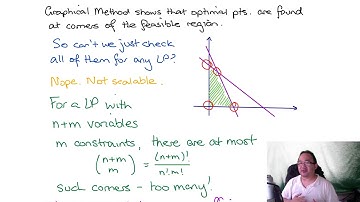 Graphical Method shows that optimal pts. are found
at corners of the feasible region.
So can't we just check
all of them for any LP?
Nope. Not scalable.
For a LP with
n+m variables
m constraints, there are at most
(n+m m) = (n+m)! / n! m!
such corners - too many!